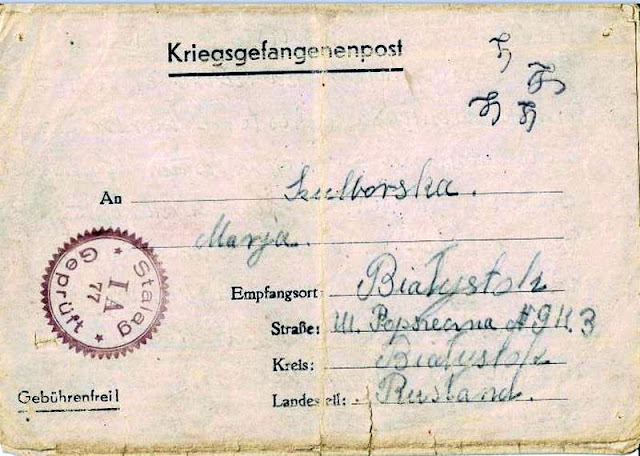 Kriegsgefangenenpost
An Szulborska.
Marja.
Empfangsort: Białystok
Straße: Ul. Popszeczna № 9 K. 3
Kreis: Białystok
Landesteil: Rusland.
Gebührenfrei!
Stalag
I A
77
Geprüft